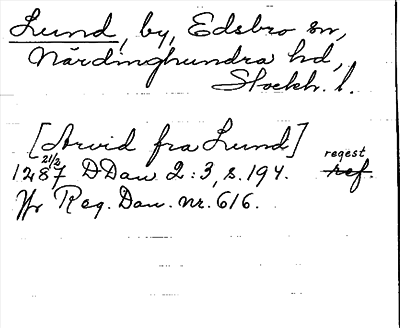 Lund, by, Edsbro sn,
Närdinghundra hd,
Stockh. l.
[Arvid fra Lund]
1287 21/2 DDan 2:3, s. 194. ref. regest
Reg. Dan. nr. 616.